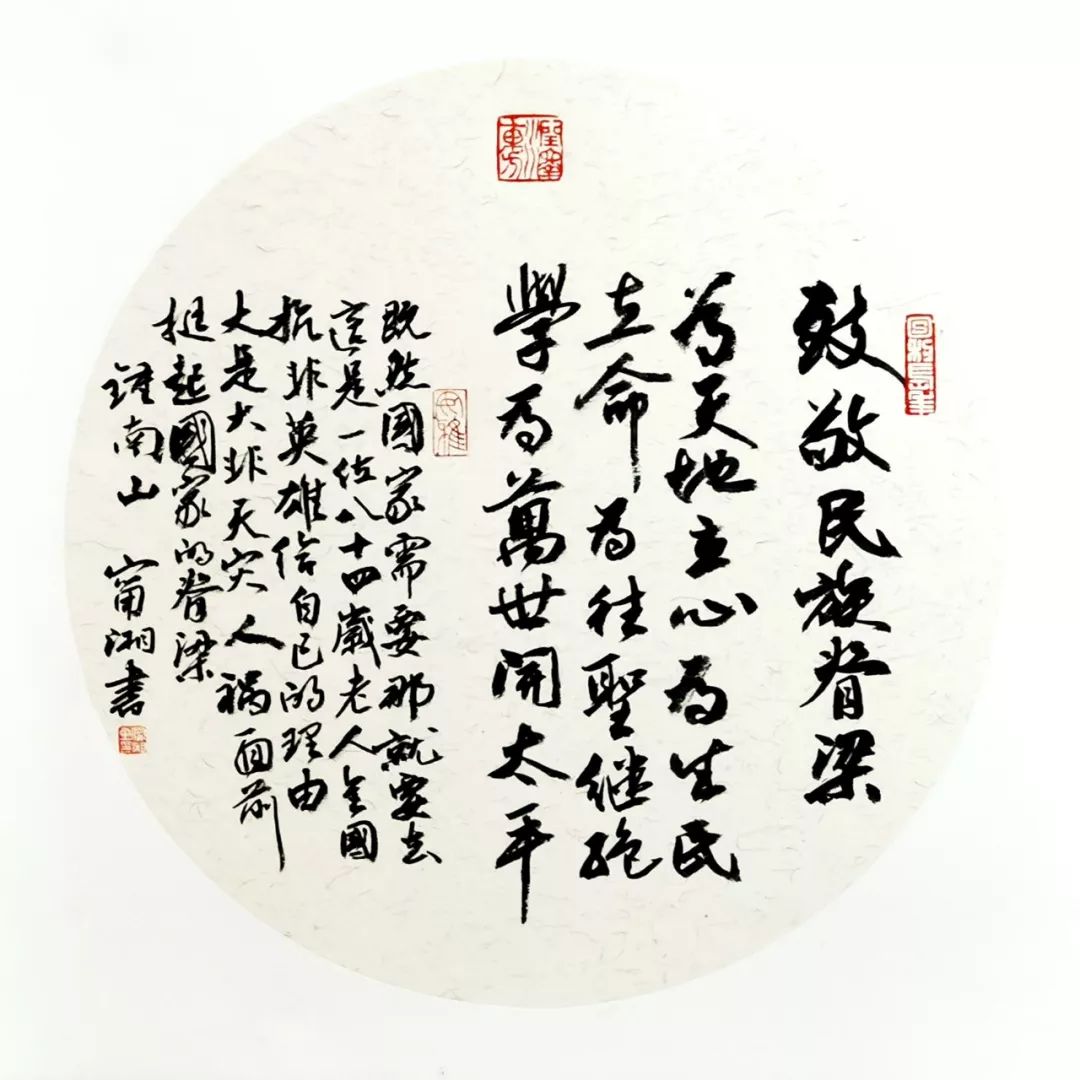 致敬民族脊梁
为天地立心为生民
立命为往聖继绝
學为萬世開太平
既然國家需要那就要去
这是一位八十四歲老人全國
抗非英雄给自己的理由
大是大非天灾人祸面前
挺起國家的脊梁
鍾南山 甯湘书